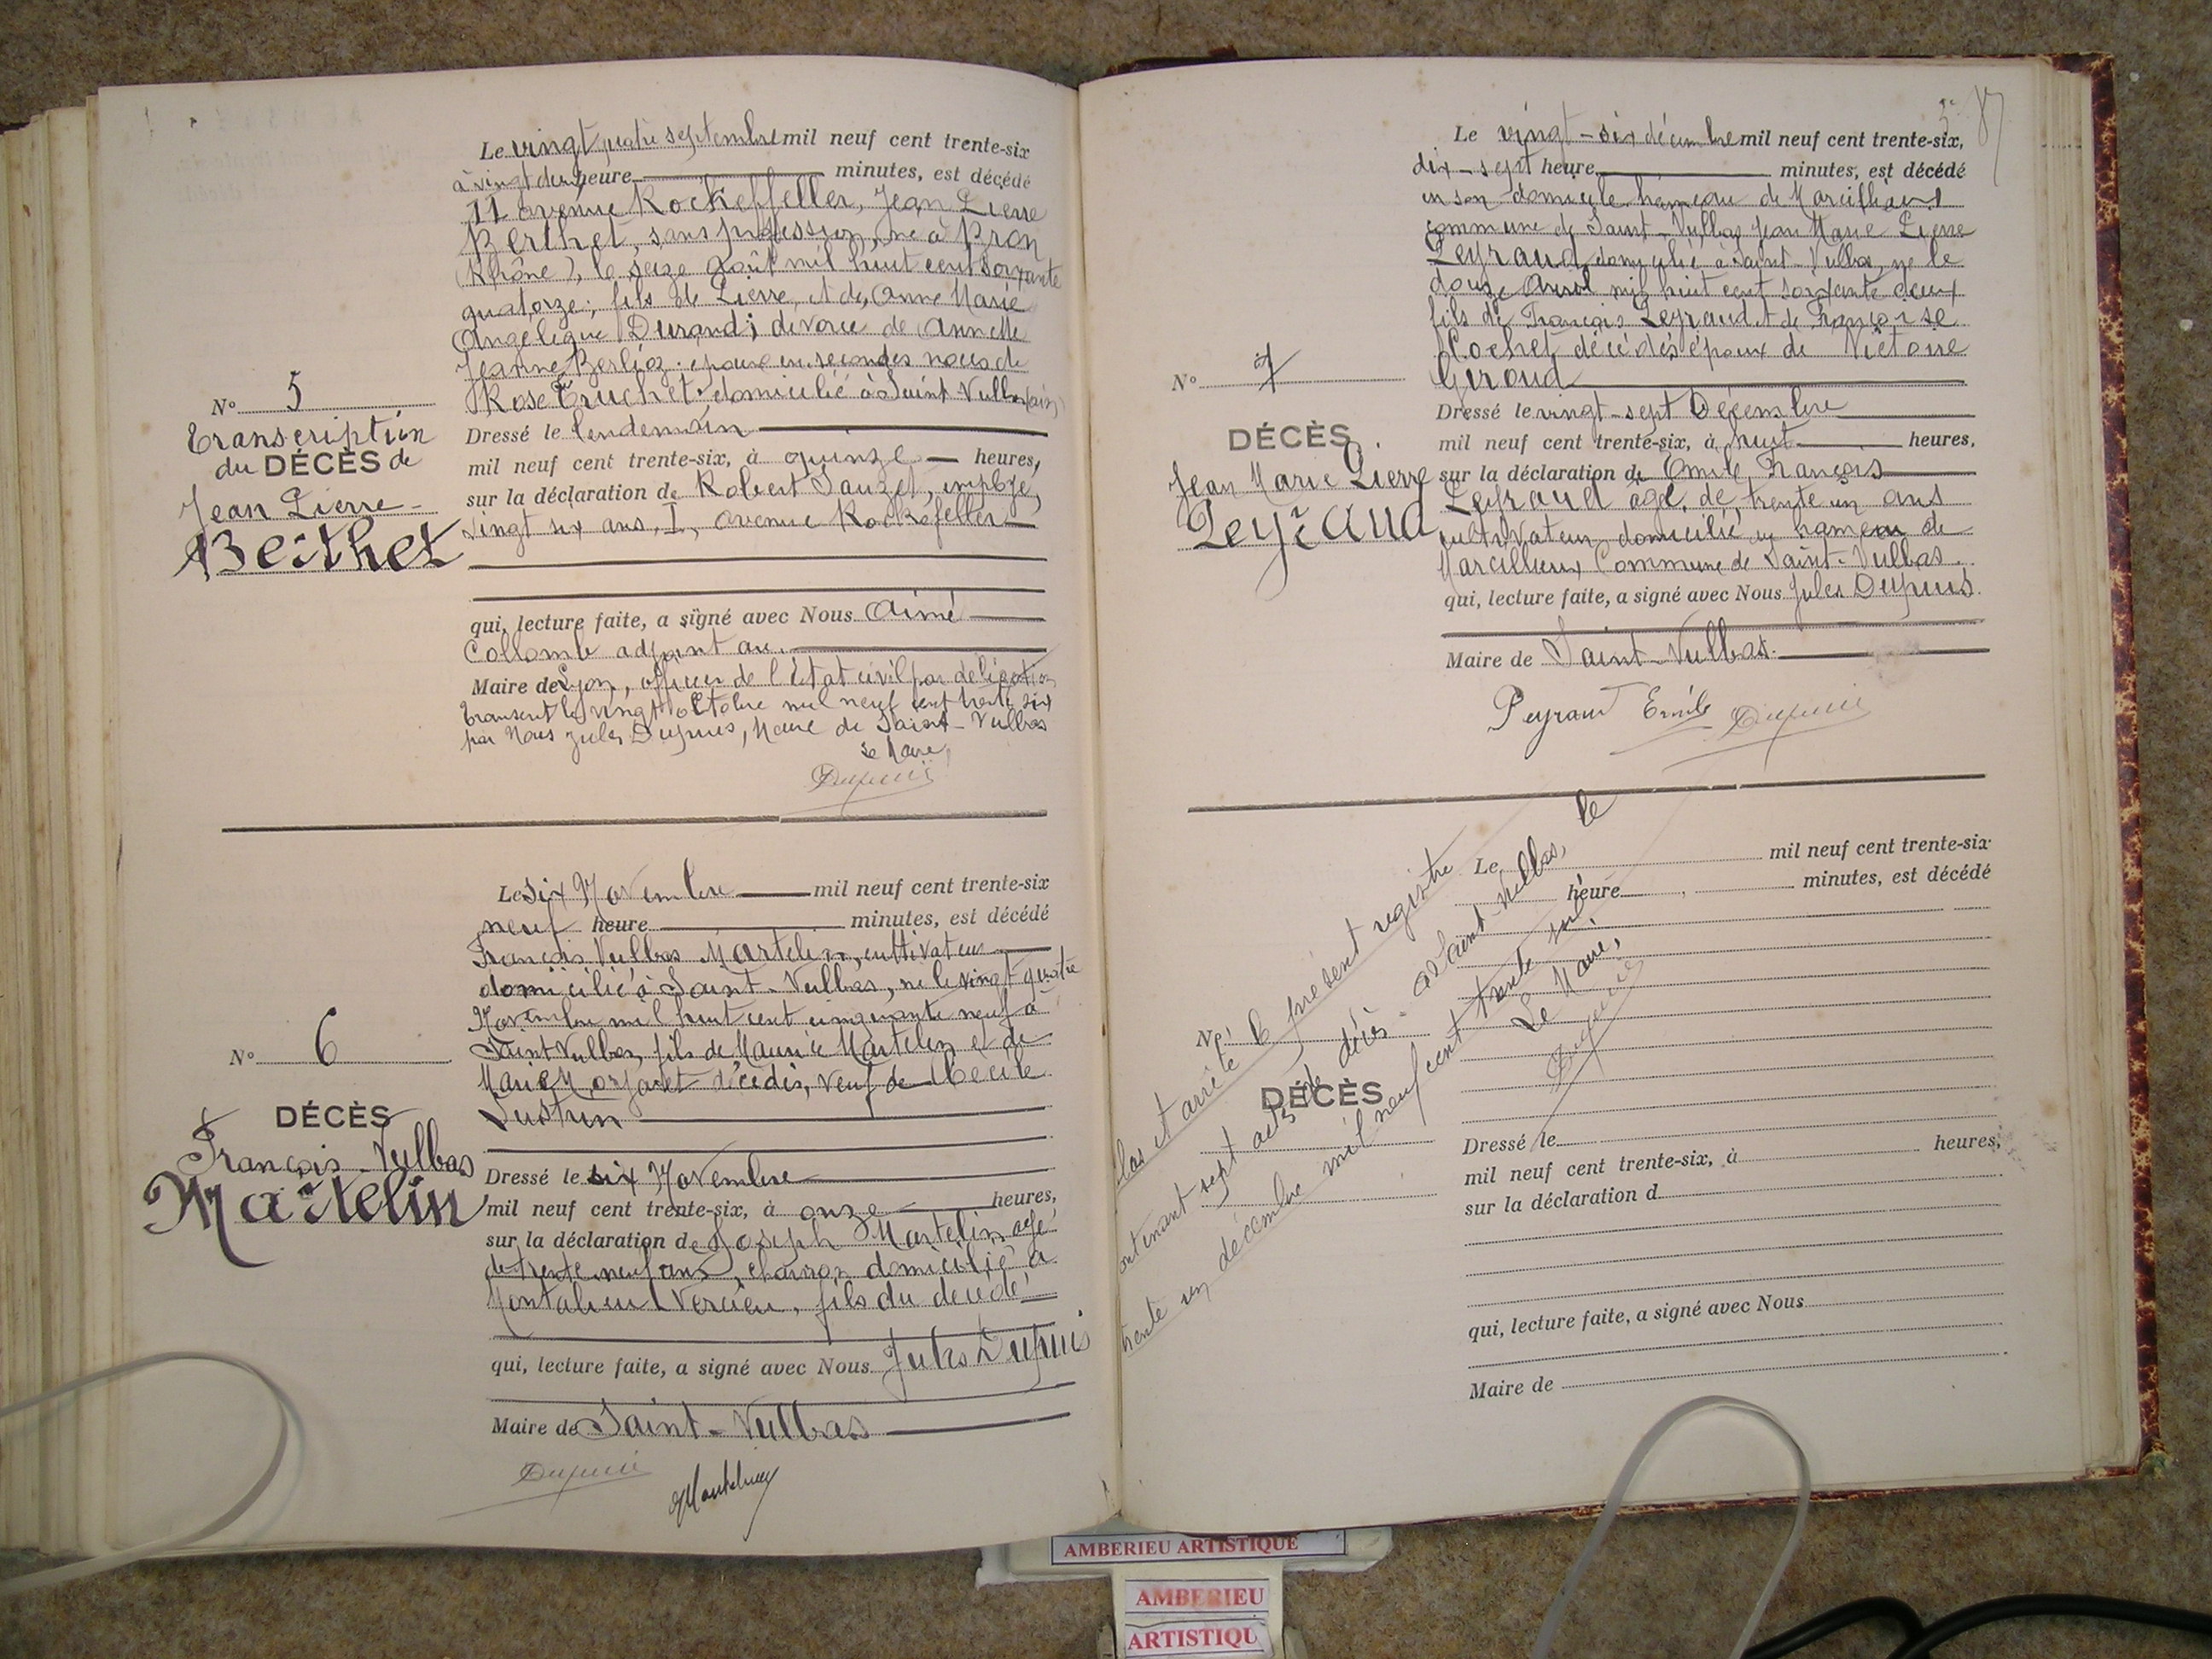 Le vingt quatre septembre mil neuf cent trente-six
à vingt deux heure minutes, est décédé
11 avenue Rockeffeller, Jean Pierre
Berthet, sans profession, né à Bron
(Rhône), le seize Août mil huit cent soixante
quatorze; fils de Pierre, et de Anne Marie
Angélique Durand; divorcé de Annette
Jeanne Berlioz. époux en secondes noces de
Rose Truchet. domicilié à Saint Vulbas (ain)
Nº 5
Transcription
du DÉCÈS de
Jean Pierre
Berthet
Dressé le lendemain
mil neuf cent trente-six, à quinze heures,
sur la déclaration de Robert Sauzet, employé,
vingt six ans, 1, avenue Rockefeller
qui, lecture faite, a signé avec Nous Aimé
Collomb adjoint au
Maire de Lyon, officier de l'état civil par délégation
Transcrit le vingt octobre mil neuf cent trente six
par Nous Jules Dupuis, Maire de Saint-Vulbas
Le Maire,
Dupuis
Le six Novembre mil neuf cent trente-six
neuf heure minutes, est décédé
François Vulbas Martelin, cultivateur
domicilié à Saint-Vulbas, né le vingt quatre
Novembre mil huit cent cinquante neuf à
Saint Vulbas, fils de Maurice Martelin et de
Marie décédés, veuf de Cécile
Nº 6
DÉCÈS
François-Vulbas
Martelin
Dressé le six Novembre
mil neuf cent trente-six, à onze heures,
sur la déclaration de Joseph Martelin agé
de trente neuf ans, charron domicilié à
Montalieu Vercieu, fils du décédé
qui, lecture faite, a signé avec Nous Jules Dupuis
Maire de Saint-Vulbas
Dupuis
87
Le vingt-six décembre mil neuf cent trente-six,
dix-sept heure minutes, est décédé
en son domicile hameau de Marcillieux
commune de Saint-Vulbas Jean Marie Pierre
Peyraud domicilié à Saint-Vulbas, né le
douze Avril mil huit cent soixante deux
fils de François Peyraud et de Françoise
Cochet décédés époux de Victoire
Giroud
Nº 7
DÉCÈS
Jean Marie Pierre
Peyraud
Dressé le vingt-sept Décembre
mil neuf cent trente-six, à huit heures,
sur la déclaration de Emile François
Peyraud agé de trente un ans
cultivateur domicilié au hameau de
Marcillieux Commune de Saint-Vulbas.
qui, lecture faite, a signé avec Nous Jules Dupuis
Maire de Saint-Vulbas.
Peyraud Emile Dupuis
Le mil neuf cent trente-six
heure , minutes, est décédé
Nº
DÉCÈS
Clos et arrêté le présent registre
contenant sept actes de décès. A Saint-Vulbas, le
trente un décembre mil neuf cent trente six.
Le Maire,
Dupuis
Dressé le
mil neuf cent trente-six, à heures,
sur la déclaration d
qui, lecture faite, a signé avec Nous
Maire de
AMBERIEU ARTISTIQUE
AMBERIEU
ARTISTIQU